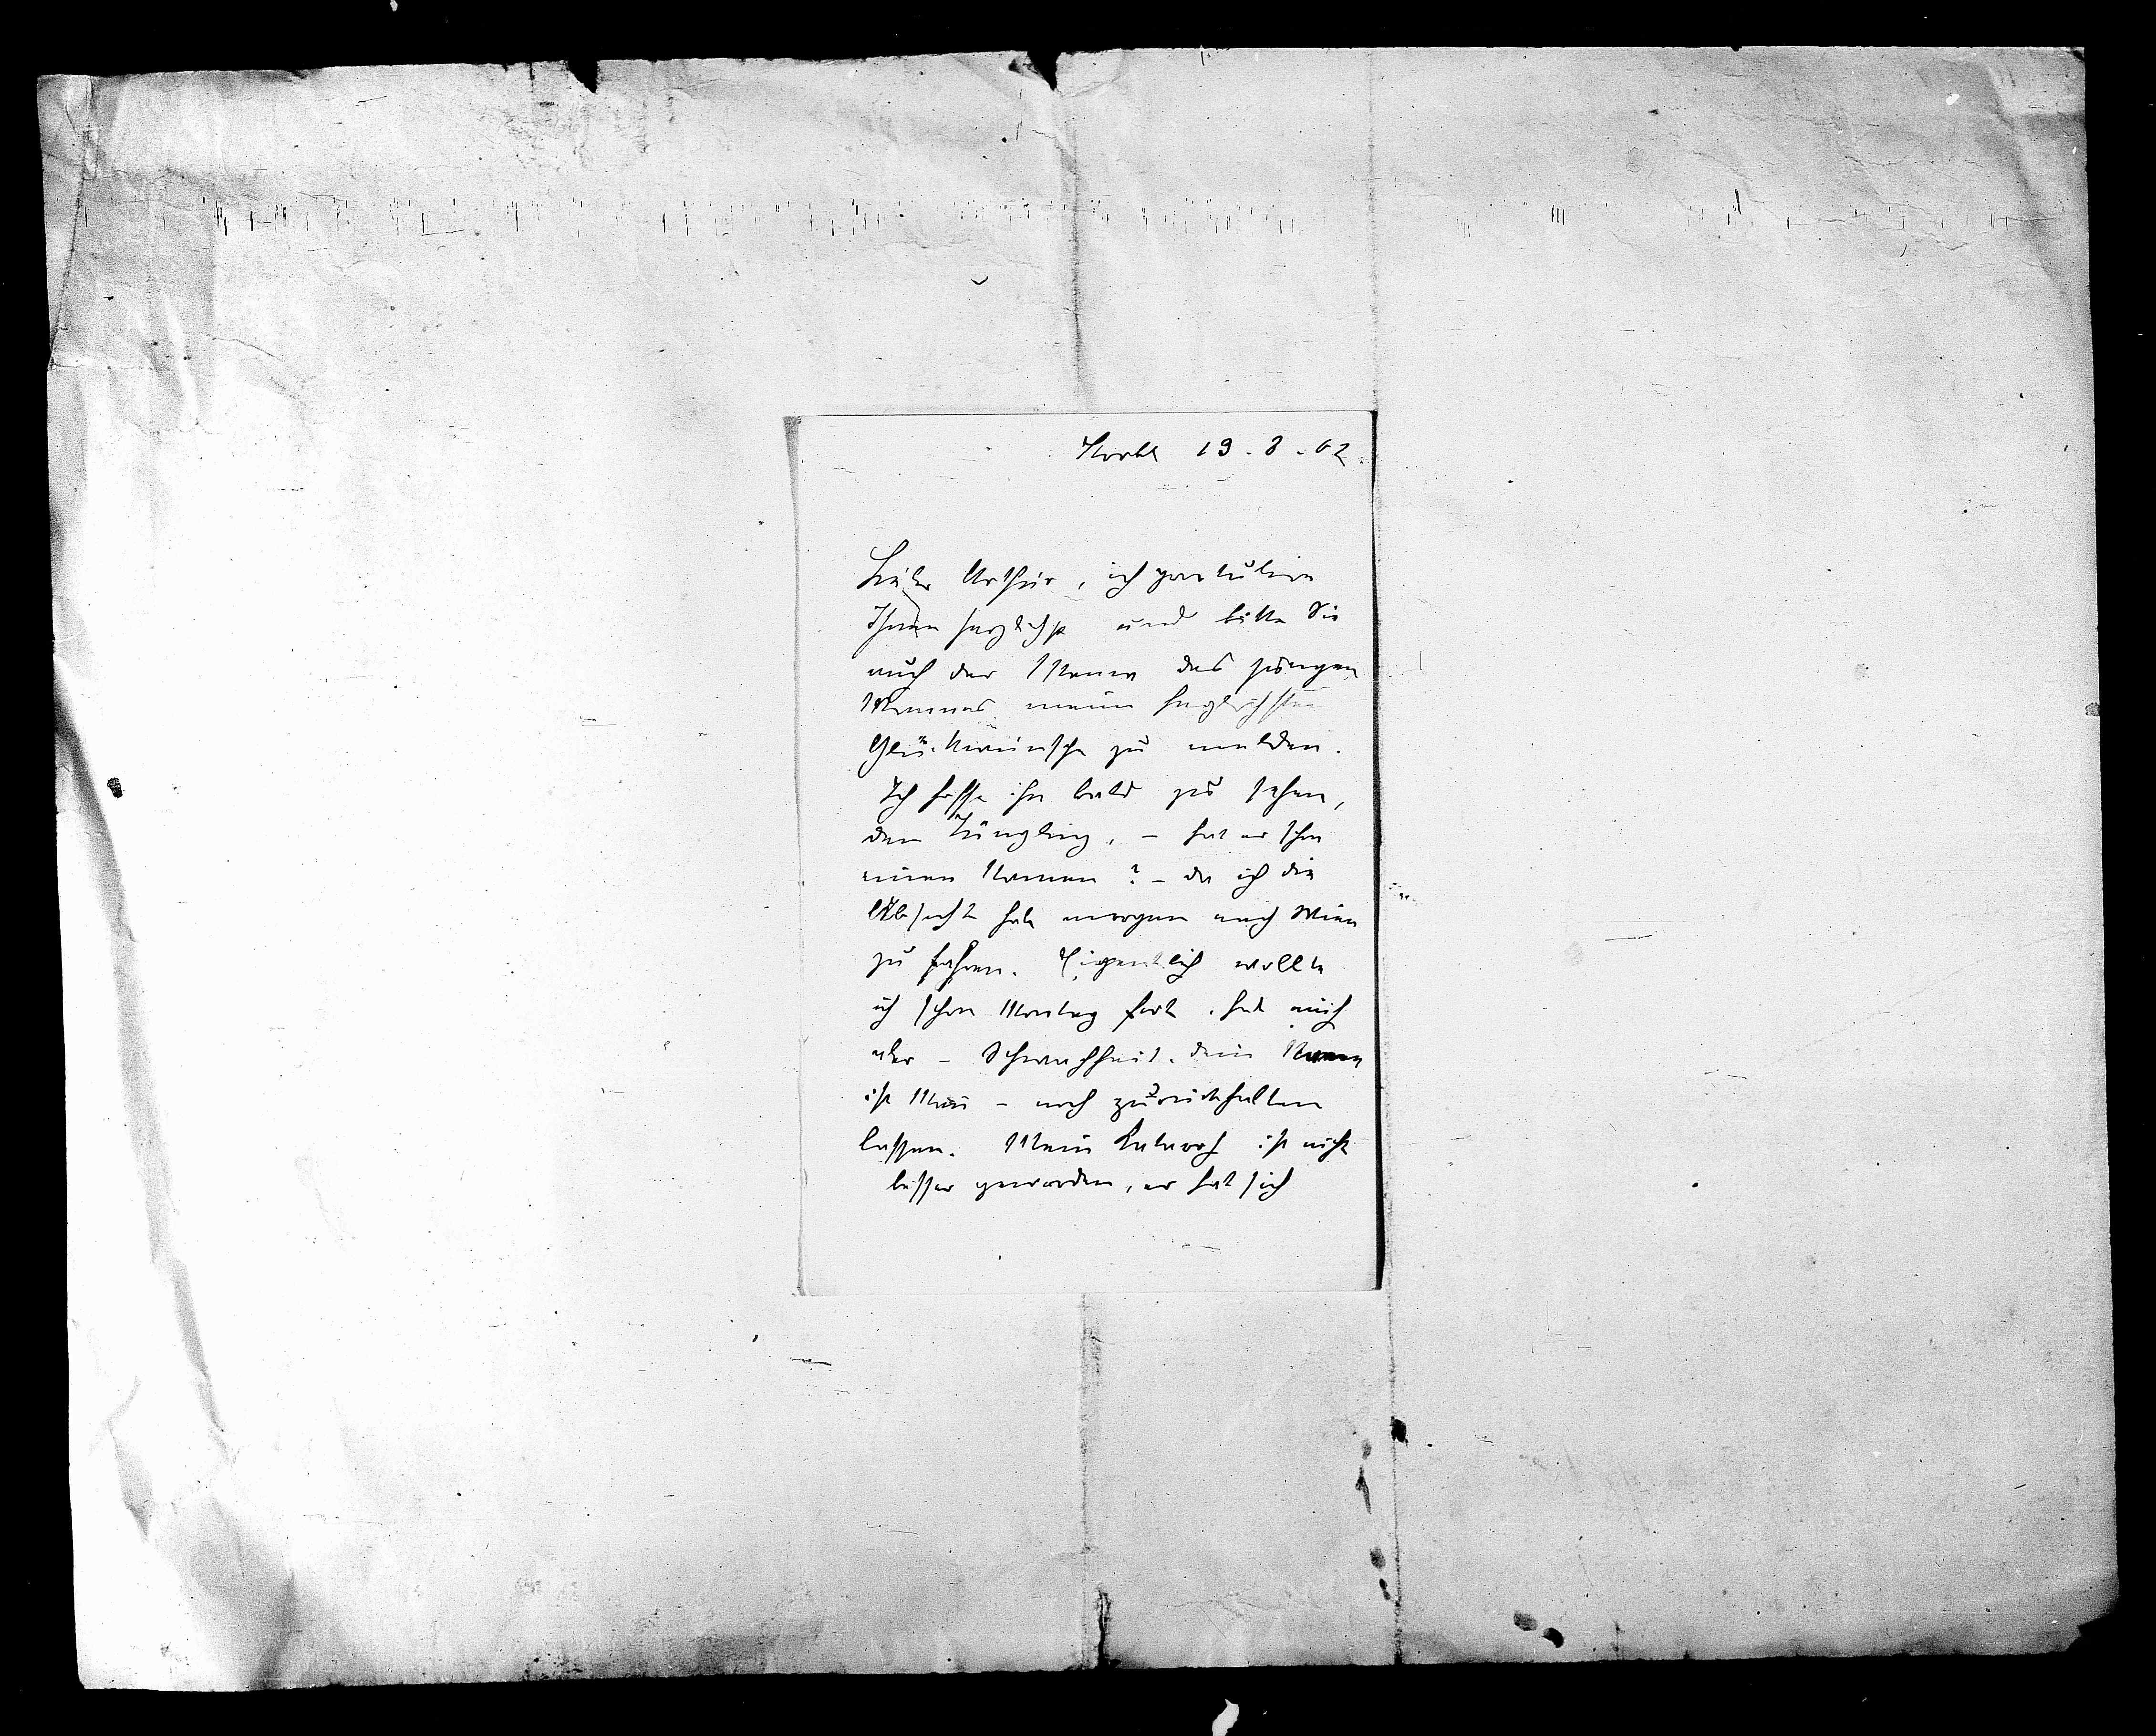 Strobl 19. 8. 02.
Lieber Arthur, ich gratuliere
Ihnen herzlichst und bitte Sie
auch der Mama des jungen
Mannes meine herzlichsten
Glückwünsche zu melden.
Ich hoffe ihn bald zu sehen,
den Jüngling, – hat er schon
einen Namen? – da ich die
Absicht habe morgen nach Wien
zu fahren. Eigentlich wollte
ich schon Montag fort. habe mich
aber – Schwachheit, dein Name
ist – noch zurückhalten
lassen. Mein Katarrh ist nicht
besser geworden, er hat sich